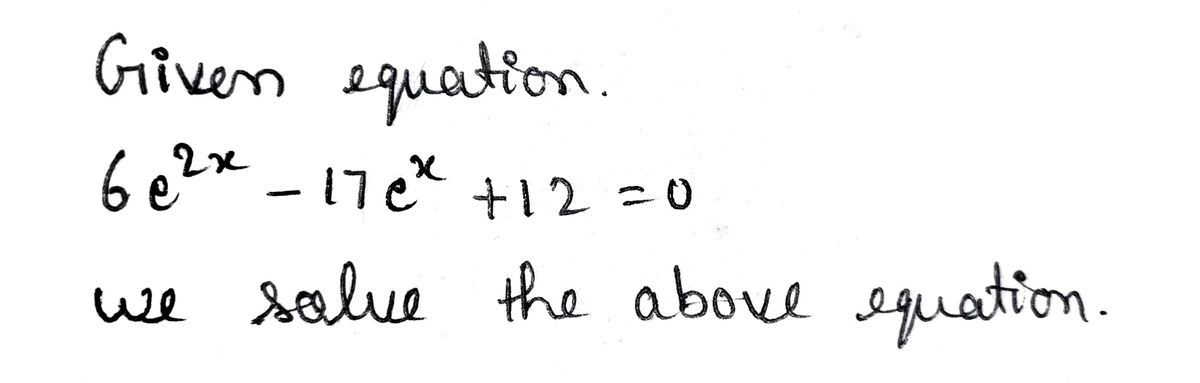 Given equation.
6e²ˣ - 17eˣ + 12 = 0
we solve the above equation.